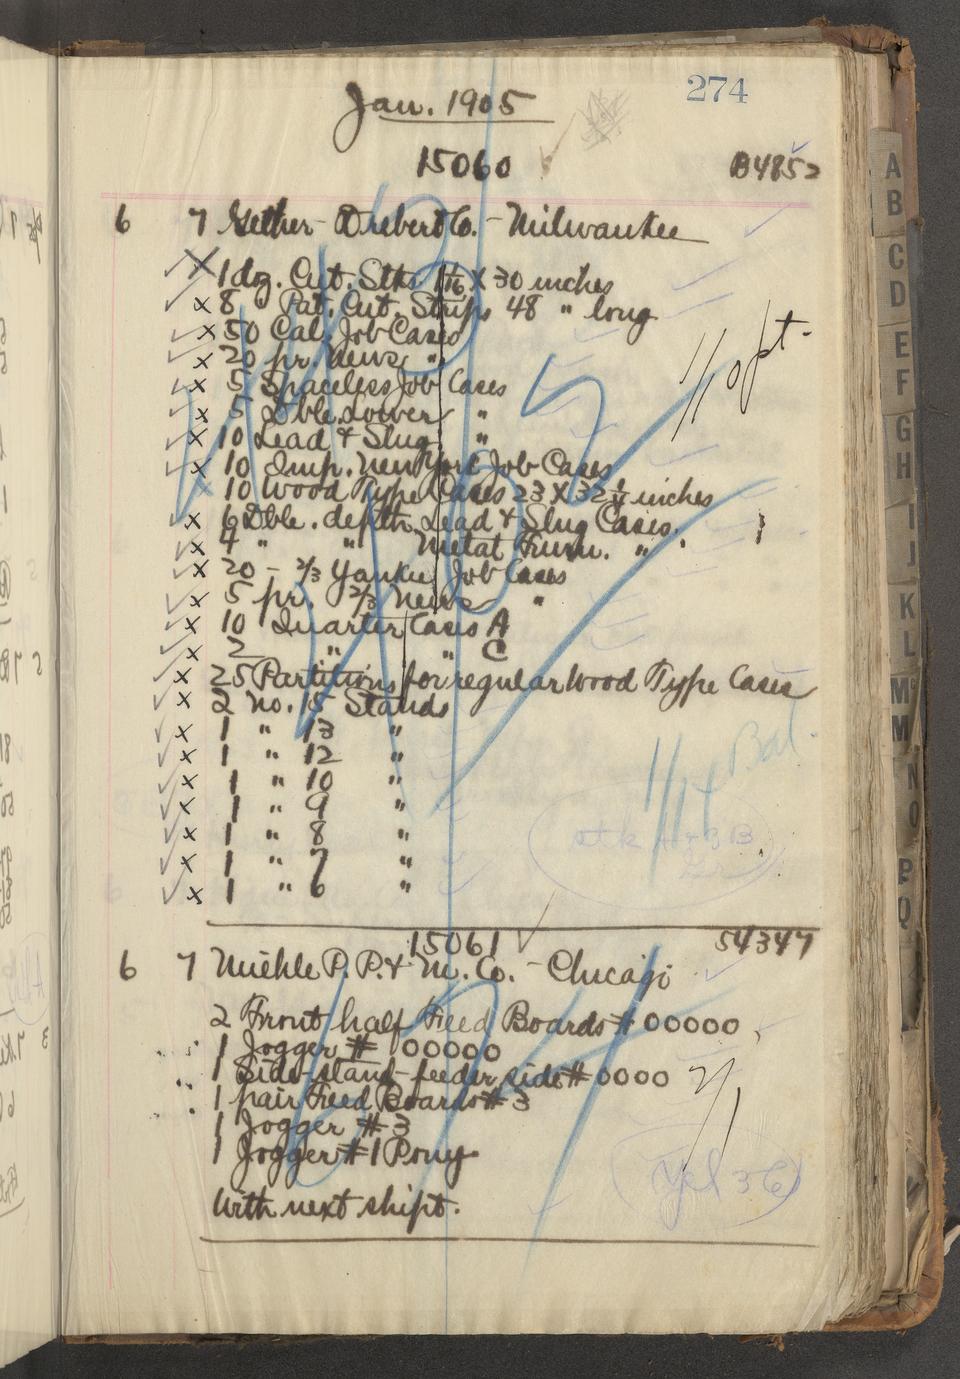 274
Jan. 1905
15060 B4852
6 7 Gether-Drebert Co. - Milwaukee
1 doz. Cut. Stks 1 1/16 X 30 inches
x 8 Pat. Cut. Strips 48 " long
x 50 Cal. Job Cases
x 20 pr. News "
x 5 Spaceless Job Cases
x 5 Dble. Lower "
x 10 Lead & Slug "
x 10 Imp. New York Job Cases
10 Wood Type Cases 23 X 32 1/4 inches
x 6 Dble. depth Lead & Slug Cases.
x 4 " " Metal Furn. "
x 20 - 2/3 Yankee Job Cases
x 5 pr. 2/3 News "
x 10 Quarter Cases A
x 2 " " C
x 25 Partitions for regular Wood Type Cases
x 2 No. 15 Stands
x 1 " 13 "
x 1 " 12 "
x 1 " 10 "
x 1 " 9 "
x 1 " 8 "
x 1 " 7 "
x 1 " 6 "
1/10 pt.
1/14 Bal.
15061 54347
6 7 Miehle P. P. & M. Co. - Chicago
2 Front half Feed Boards # 00000
1 Jogger # 00000
1 Side-stand-feeder side # 0000
1 pair Feed Boards # 3
1 Jogger # 3
1 Jogger # 1 Pony
With next shipt.
2/1
Yel 36
A
B
C
D
E
F
G
H
I
J
K
L
Mc
M
N
O
P
Q